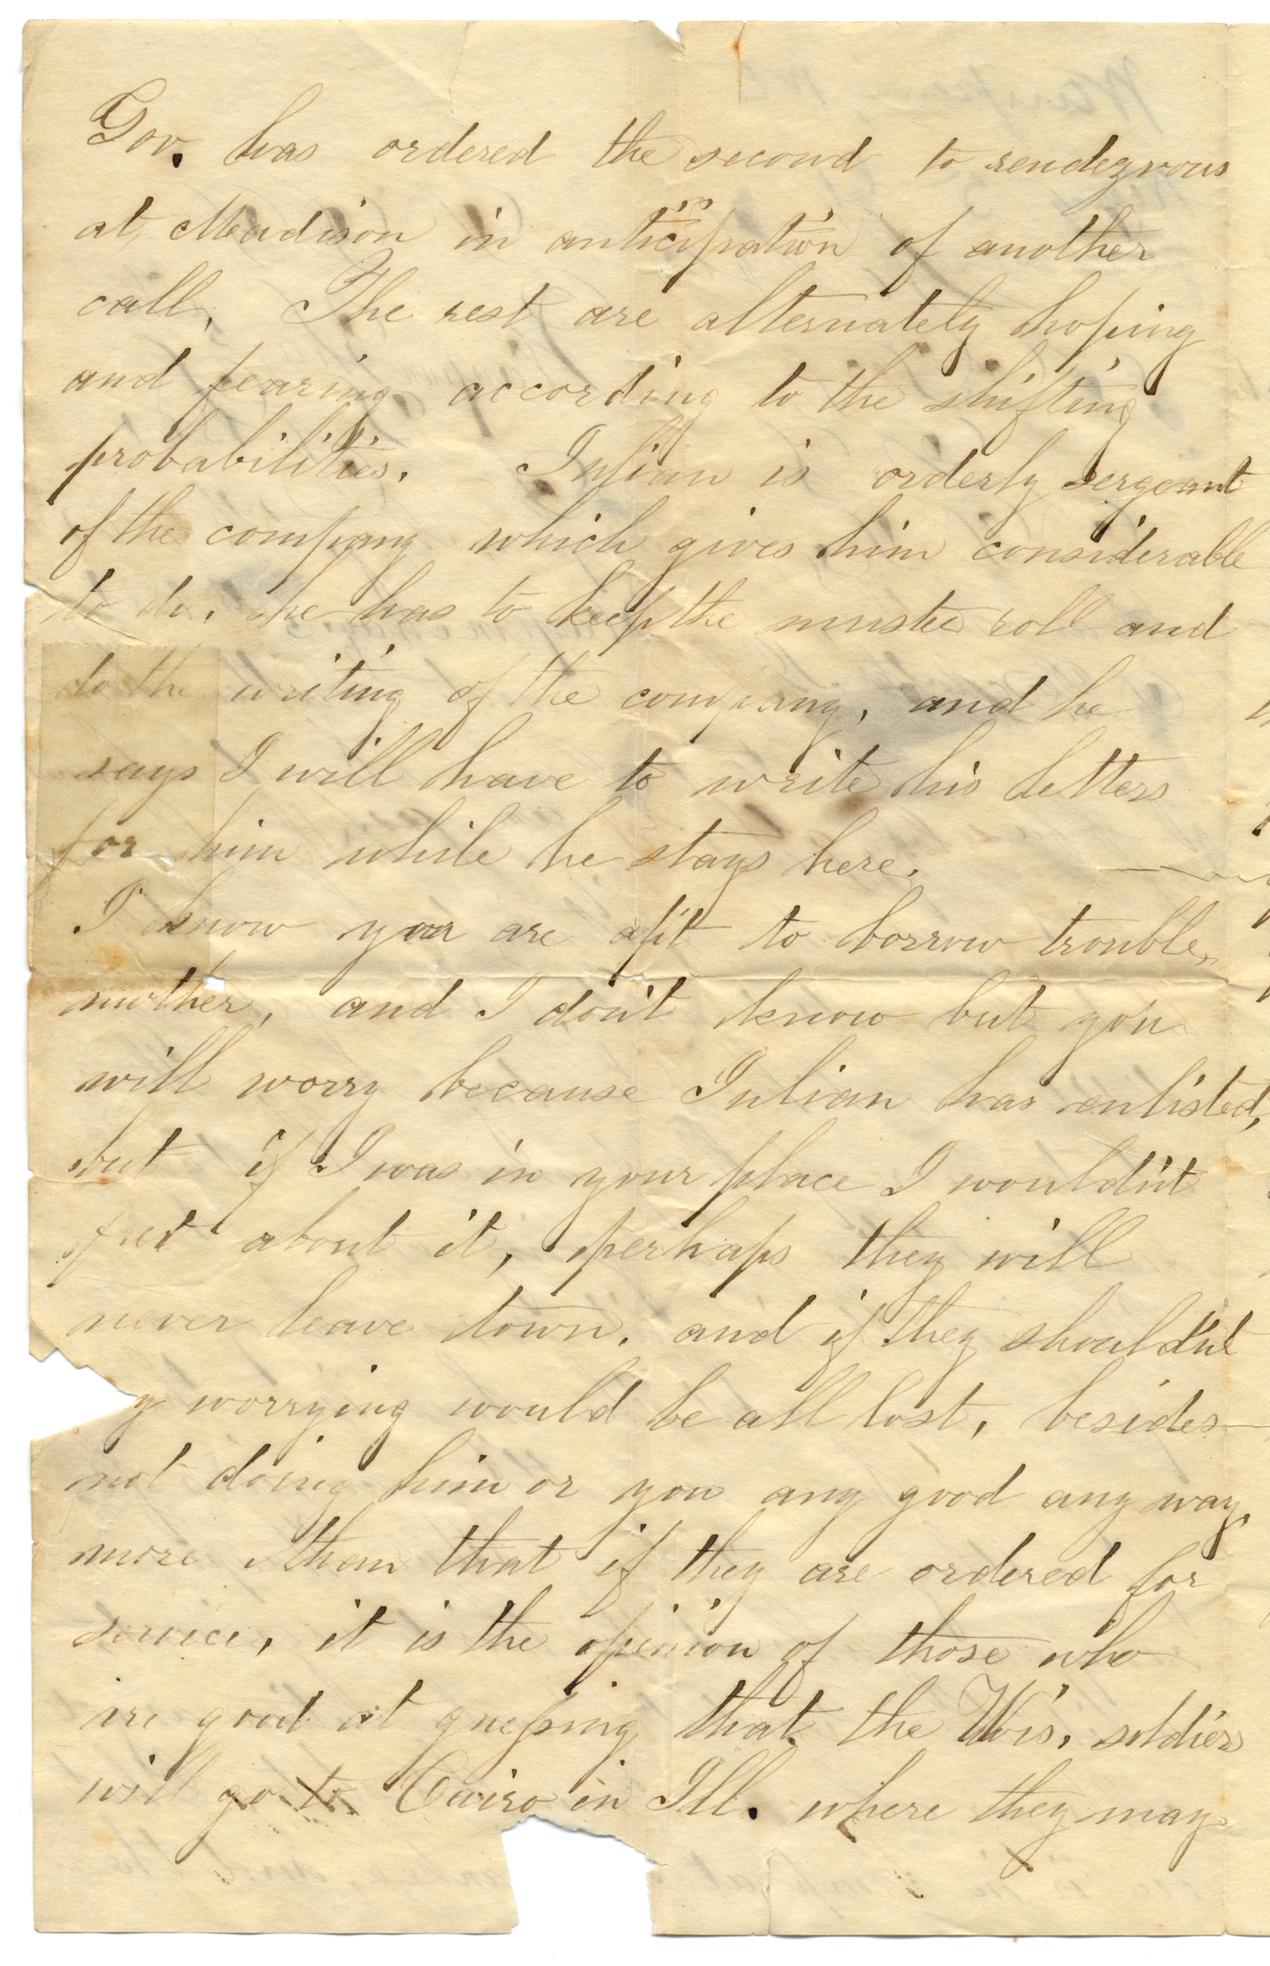 Gov. has ordered the second to rendezvous
at Madison in anticipation of another
call. The rest are alternately hoping
and fearing according to the shifting
probabilities. Julian is orderly sergeant
of the company which gives him considerable
to do. he has to keep the muster roll and
do the writing of the company, and he
says I will have to write his letters
for him while he stays here.
I know you are apt to borrow trouble,
mother, and I don't know but you
will worry because Julian has enlisted,
but if I was in your place I wouldn't
fret about it, perhaps they will
never leave town. and if they shouldn't
worrying would be all lost, besides
not doing him or you any good any way,
more than that if they are ordered for
service, it is the opinion of those who
are good at guessing that the Wis. soldiers
will go to Cairo in Ill. where they may